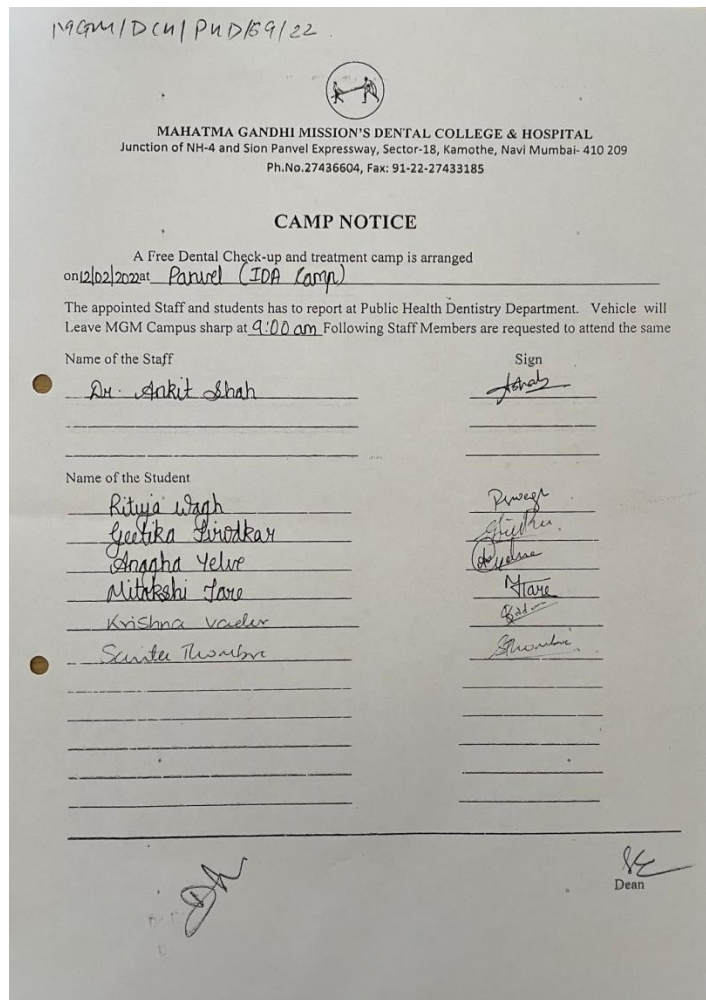 MGM/DCH/PHD/59/22
MAHATMA GANDHI MISSION'S DENTAL COLLEGE & HOSPITAL
Junction of NH-4 and Sion Panvel Expressway, Sector-18, Kamothe, Navi Mumbai- 410 209
Ph.No.27436604, Fax: 91-22-27433185
CAMP NOTICE
A Free Dental Check-up and treatment camp is arranged
on 12/02/2022 at Panvel (IDA Camp)
The appointed Staff and students has to report at Public Health Dentistry Department. Vehicle will
Leave MGM Campus sharp at 9:00 am Following Staff Members are requested to attend the same
Name of the Staff Sign
Dr. Ankit Shah
Name of the Student
Rituja Wagh
Geetika Sirodkar
Anagha Yelve
Mitakshi Tare Tare
Krishna
Thombre
Dean